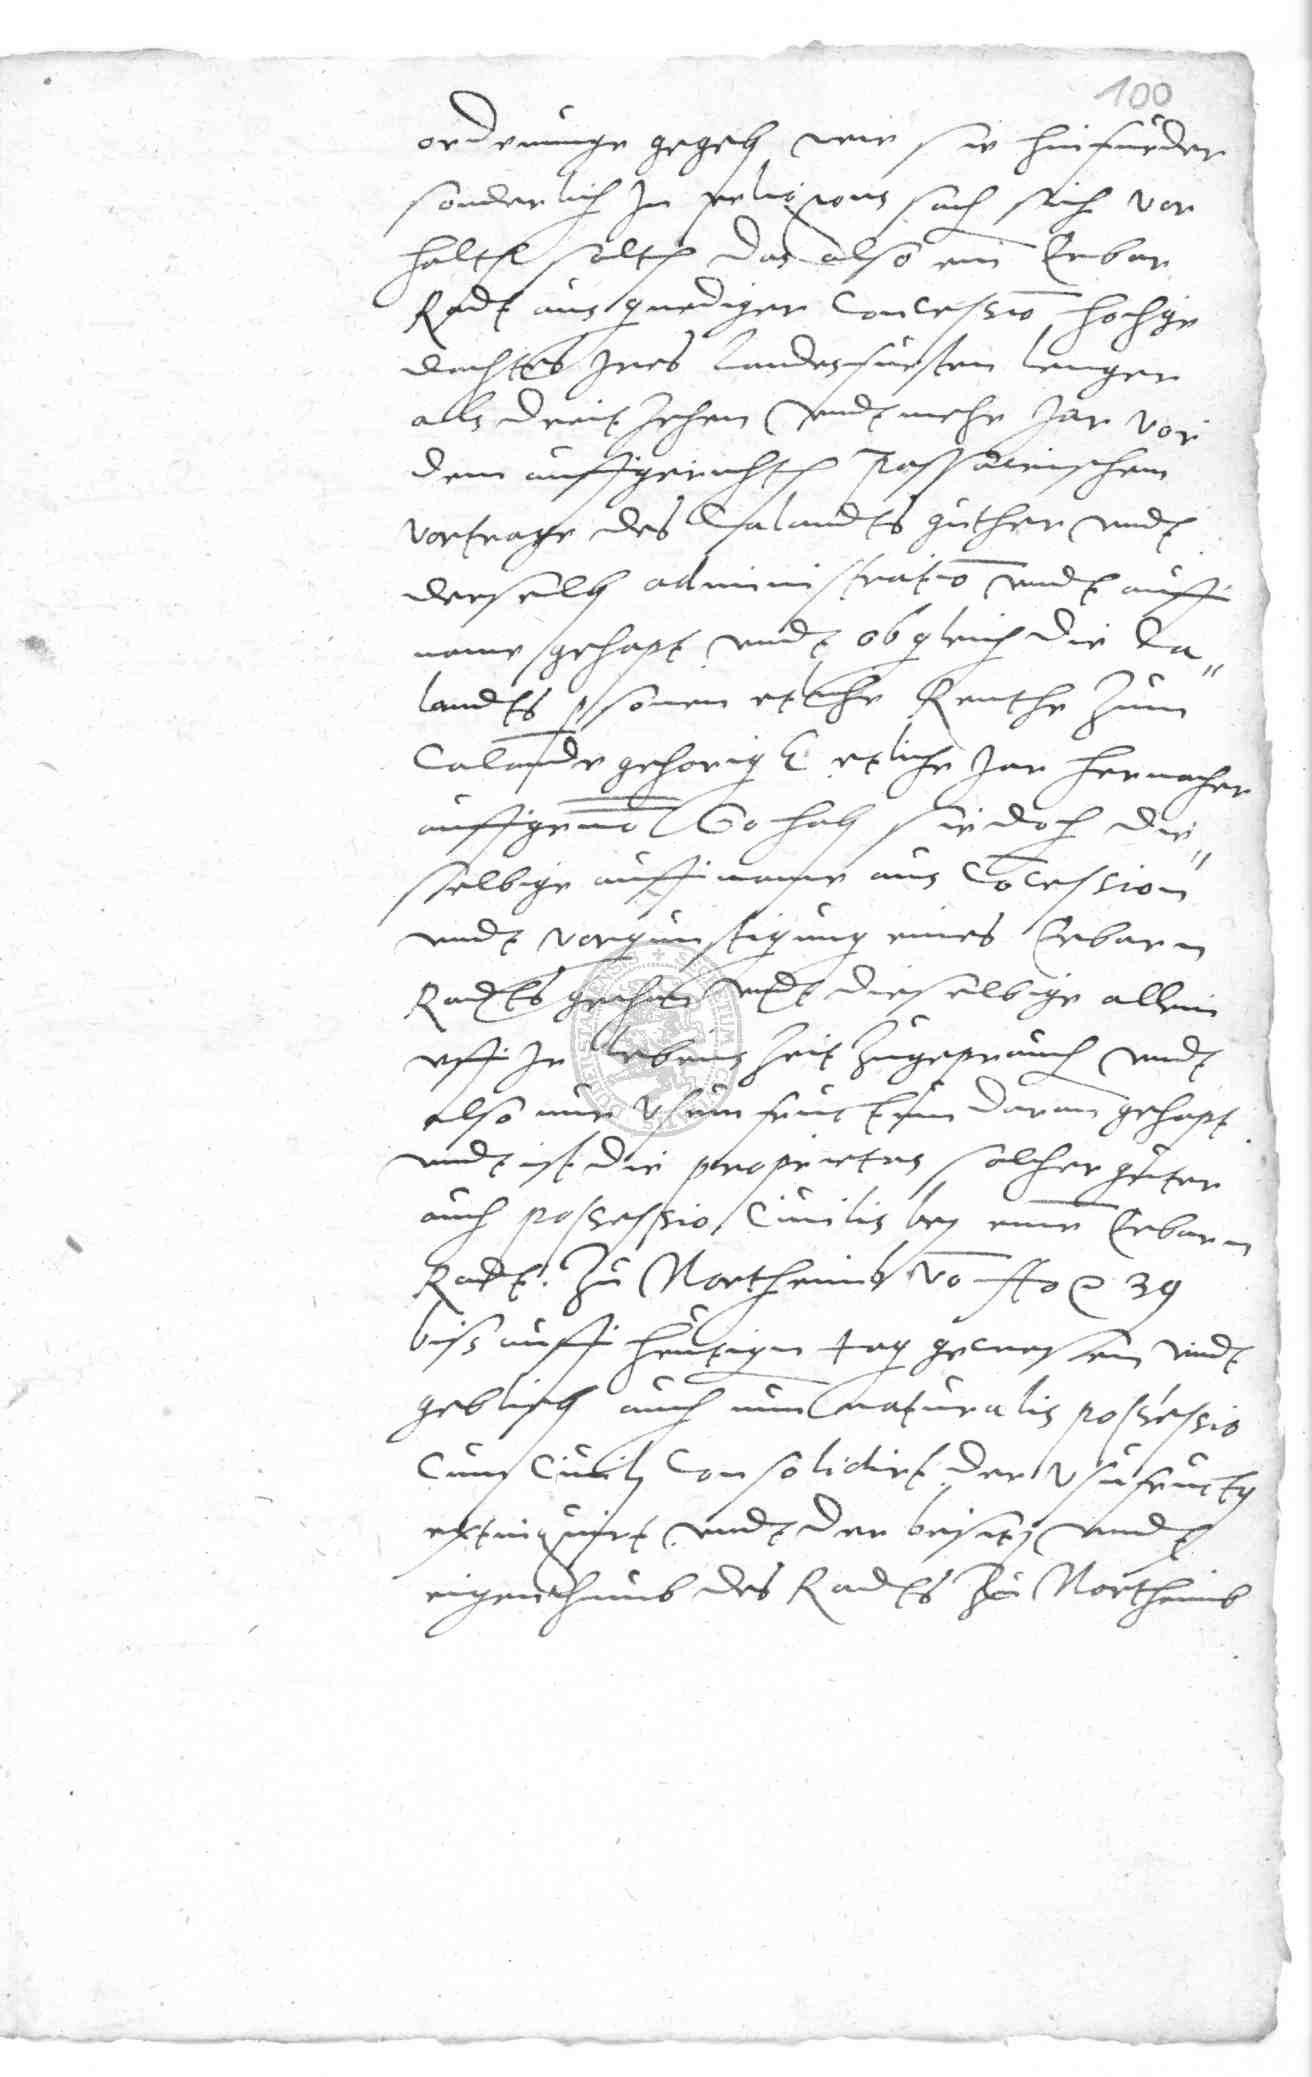 100
ordenunge gegeben wie sie hinfurder
sonderlich In religions sach sich vor
halten solten das also ein Erbar
Radt aus gnediger Concession hochge
dachtes Ires Landesfursten lenger
als dreit zehen undt mehr Jar vor
dem auffgerichten Passawischem
vortrage des Calandts guther undt
derselben administratio undt auff
name gehapt undt obgleich die Ca"
landts psonen etliche Renthe zum
Calande gehorig etliche Jar hernacher
auffgenno So haben sie doch die"
selbige auffname aus Cocession
undt vorgunstigung eines Erbarn
Radts gethan undt dieselbige allein
uff Ir lebens zeit zugeprauch undt
also nur usumfructum daran gehapt
undt ist die proprietas solcher guter
auch possessio Civilis bey einē Erbarn
Radt zu Northeimb vō Ao 39
biss auff heutigen tag gewesen undt
geblieben auch nun naturalis possessio
Cum Civili Consolidirt der usufructus
extinguirt undt der besitz undt
eigenthumb des Radts zu Northeimb